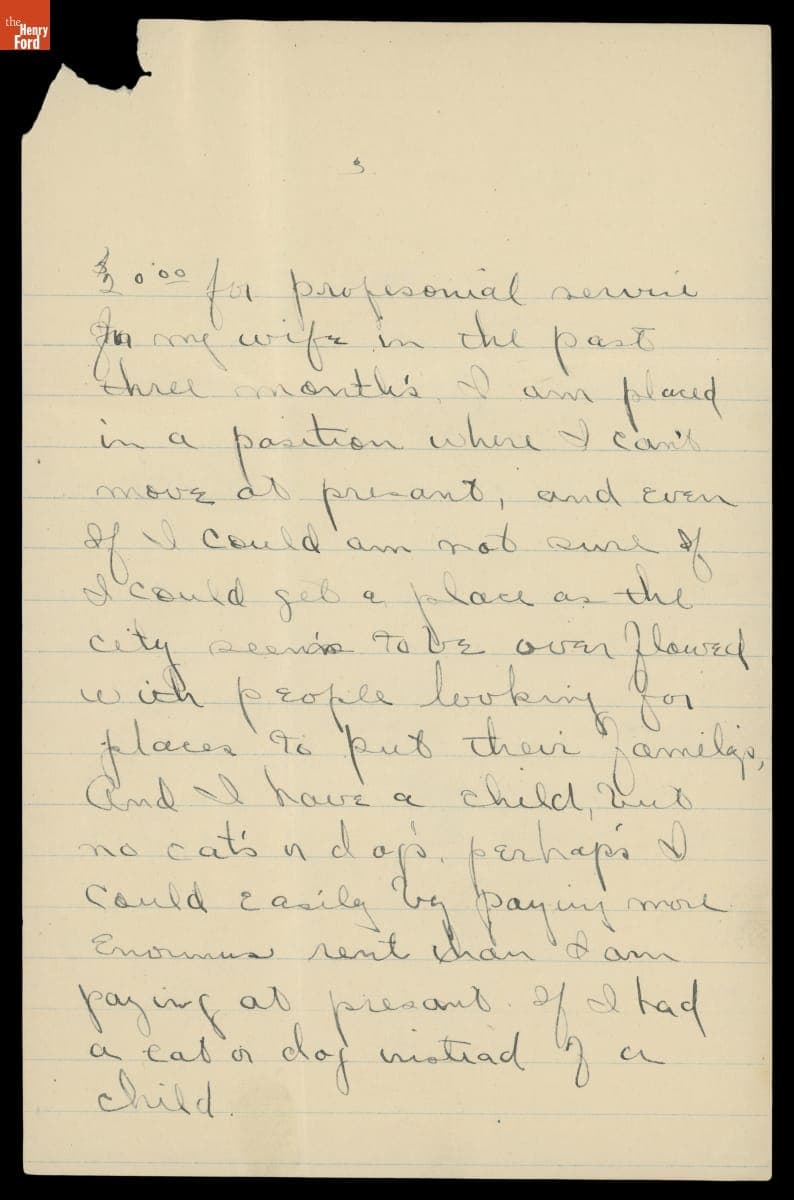 the
Henry
Ford
3
$20.00 for profesonial service
for my wife in the past
three month's. I am placed
in a position where I can't
move at presant, and even
If I could am not sure If
I could get a place as the
city seems to be over flowed
with people looking for
places to put their familys,
And I have a child, but
no cat's or dog's. perhap's I
could easily by paying more
Enormus rent than I am
paying at presant. If I had
a cat or dog instead of a
child.